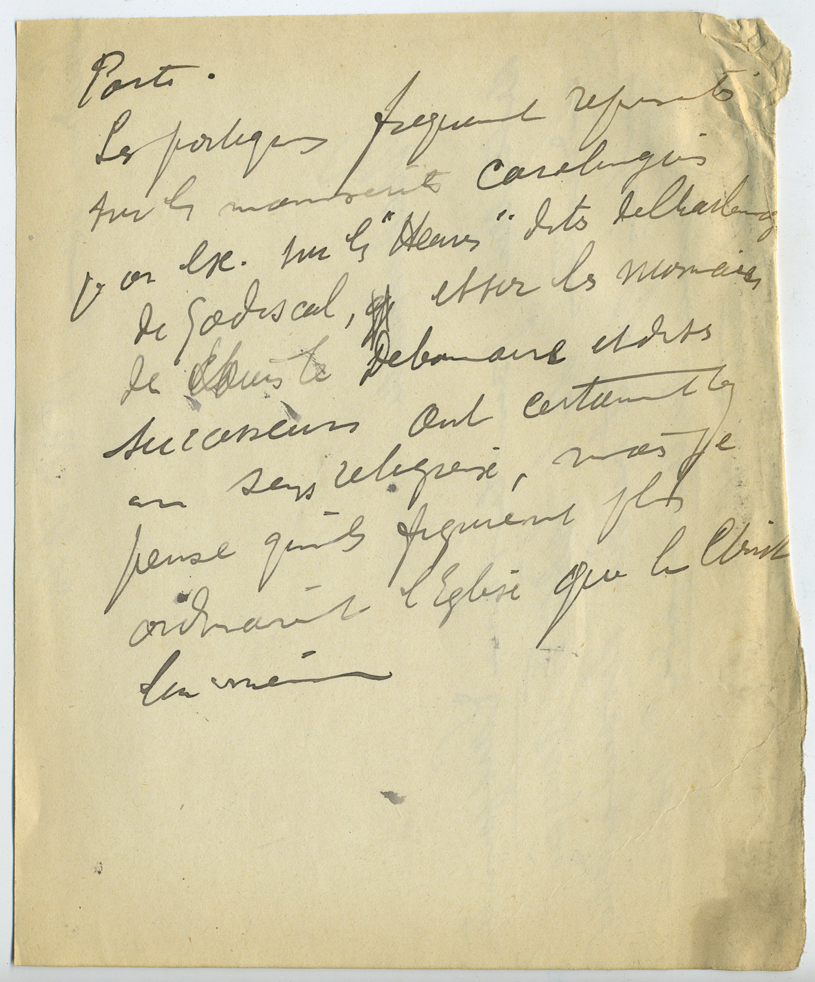 Porte.
Les portiques fréquemment représentés
sur les manuscrits carolingiens
par ex. sur les "Heures" dites de Charlemag
de Godescal, et sur les monnaies
de Louis le Debonnaire et de ses
successeurs ont certainement
un sens religieux, mais je
pense qu'ils figurent plus
ordinairement l'Eglise que le Christ
lui même